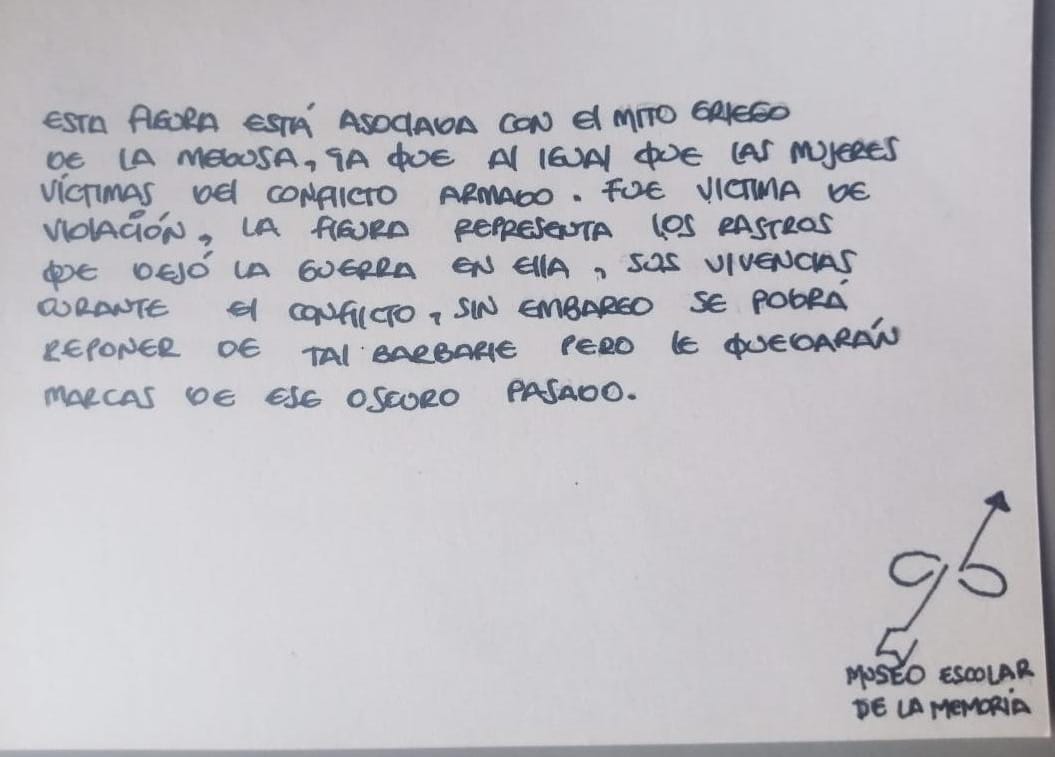 ESTA FIGURA ESTÁ ASOCIADA CON El MITO GRIEGO
DE LA MEDUSA, YA QUE Al IGUAl QUE LAS MUJERES
VÍCTIMAS DEl CONFlICTO ARMADO. FUE VICTIMA DE
VIOlACIÓN, LA FIGURA REPRESENTA lOS RASTROS
QUE DEJÓ LA GUERRA EN EllA, SUS VIVENCIAS
DURANTE El CONFlICTO, SIN EMBARGO SE PODRÁ
REPONER DE TAl BARBARIE PERO lE QUEDARÁN
MARCAS DE ESE OSCURO PASADO.
MUSEO ESCOLAR
DE LA MEMORIA